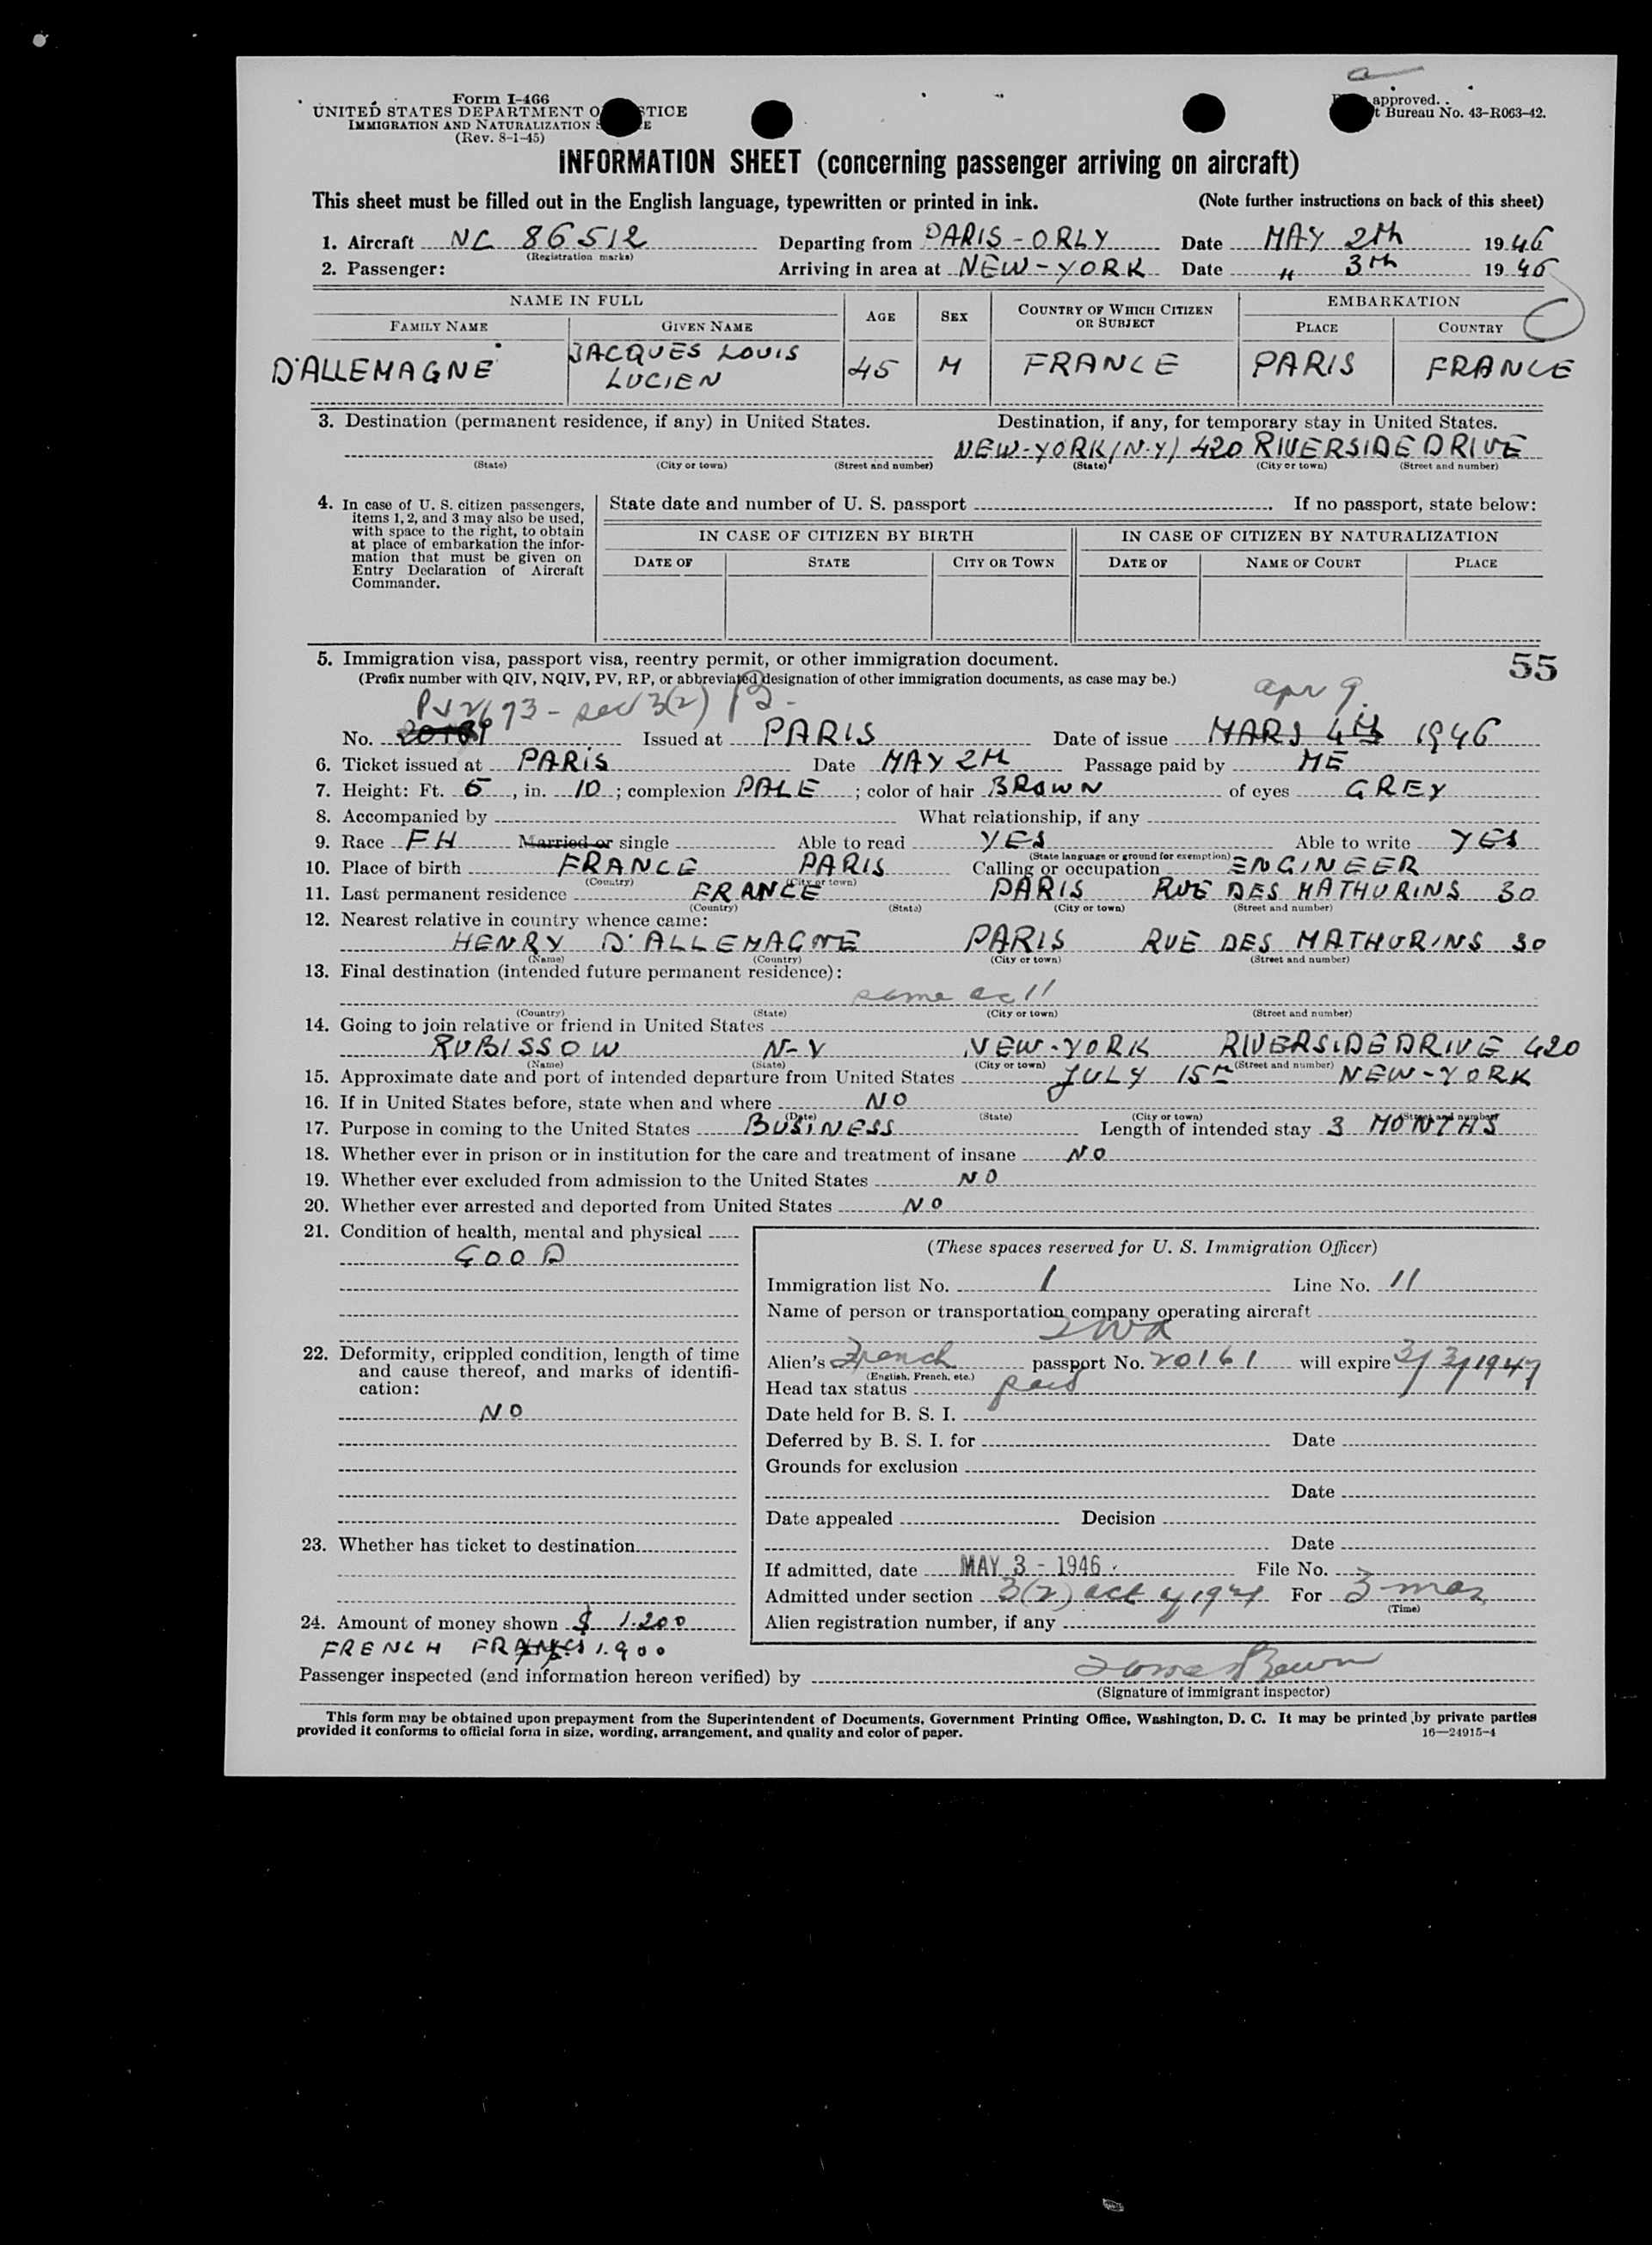 Form I-466
UNITED STATES DEPARTMENT O STICE
IMMIGRATION AND NATURALIZATION S E
(Rev. 8-1-45)
approved.
t Bureau No. 43-R063-42.
INFORMATION SHEET (concerning passenger arriving on aircraft)
This sheet must be filled out in the English language, typewritten or printed in ink. (Note further instructions on back of this sheet)
1. Aircraft NC 86512 Departing from PARIS-ORLY Date MAY 2th 1946
(Registration marks)
2. Passenger: Arriving in area at NEW-YORK Date " 3th 1946
NAME IN FULL AGE SEX COUNTRY OF WHICH CITIZEN OR SUBJECT EMBARKATION
FAMILY NAME GIVEN NAME PLACE COUNTRY
D'ALLEMAGNE JACQUES LOUIS LUCIEN 45 M FRANCE PARIS FRANCE
3. Destination (permanent residence, if any) in United States. Destination, if any, for temporary stay in United States.
NEW-YORK (N.Y) 420 RIVERSIDE DRIVE
(State) (City or town) (Street and number) (State) (City or town) (Street and number)
4. In case of U. S. citizen passengers, items 1, 2, and 3 may also be used, with space to the right, to obtain at place of embarkation the information that must be given on Entry Declaration of Aircraft Commander.
State date and number of U. S. passport If no passport, state below:
IN CASE OF CITIZEN BY BIRTH IN CASE OF CITIZEN BY NATURALIZATION
DATE OF STATE CITY OR TOWN DATE OF NAME OF COURT PLACE
5. Immigration visa, passport visa, reentry permit, or other immigration document. 55
(Prefix number with QIV, NQIV, PV, RP, or abbreviated designation of other immigration documents, as case may be.)
PV 2/693 - sec 3(2) B. apr 9.
No. Issued at PARIS Date of issue MARS 4th 1946
6. Ticket issued at PARIS Date MAY 2th Passage paid by ME
7. Height: Ft. 5, in. 10; complexion PALE; color of hair BROWN of eyes GREY
8. Accompanied by What relationship, if any
9. Race FH Married or single Able to read YES Able to write YES
(State language or ground for exemption)
10. Place of birth FRANCE PARIS Calling or occupation ENGINEER
(Country) (City or town)
11. Last permanent residence FRANCE PARIS RUE DES MATHURINS 30
(Country) (State) (City or town) (Street and number)
12. Nearest relative in country whence came:
HENRY D'ALLEMAGNE PARIS RUE DES MATHURINS 30
(Name) (Country) (City or town) (Street and number)
13. Final destination (intended future permanent residence):
same as 11
(Country) (State) (City or town) (Street and number)
14. Going to join relative or friend in United States
RUBISSOW N-Y NEW-YORK RIVERSIDE DRIVE 420
(Name) (State) (City or town) (Street and number)
15. Approximate date and port of intended departure from United States JULY 15th NEW-YORK
16. If in United States before, state when and where NO
(Date) (State) (City or town) (Street and number)
17. Purpose in coming to the United States BUSINESS Length of intended stay 3 MONTHS
18. Whether ever in prison or in institution for the care and treatment of insane NO
19. Whether ever excluded from admission to the United States NO
20. Whether ever arrested and deported from United States NO
21. Condition of health, mental and physical
GOOD
22. Deformity, crippled condition, length of time and cause thereof, and marks of identification:
NO
23. Whether has ticket to destination
24. Amount of money shown $ 1.200
FRENCH FRANCS 1.900
(These spaces reserved for U. S. Immigration Officer)
Immigration list No. 1 Line No. 11
Name of person or transportation company operating aircraft
TWA
Alien's French passport No. 20161 will expire 3/3/1947
(English, French, etc.)
Head tax status paid
Date held for B. S. I.
Deferred by B. S. I. for Date
Grounds for exclusion
Date
Date appealed Decision
Date
If admitted, date MAY 3 - 1946 File No.
Admitted under section 3(2) act of 1924 For 3 mos
(Time)
Alien registration number, if any
Passenger inspected (and information hereon verified) by
(Signature of immigrant inspector)
This form may be obtained upon prepayment from the Superintendent of Documents, Government Printing Office, Washington, D. C. It may be printed by private parties
provided it conforms to official form in size, wording, arrangement, and quality and color of paper. 16—24915-4